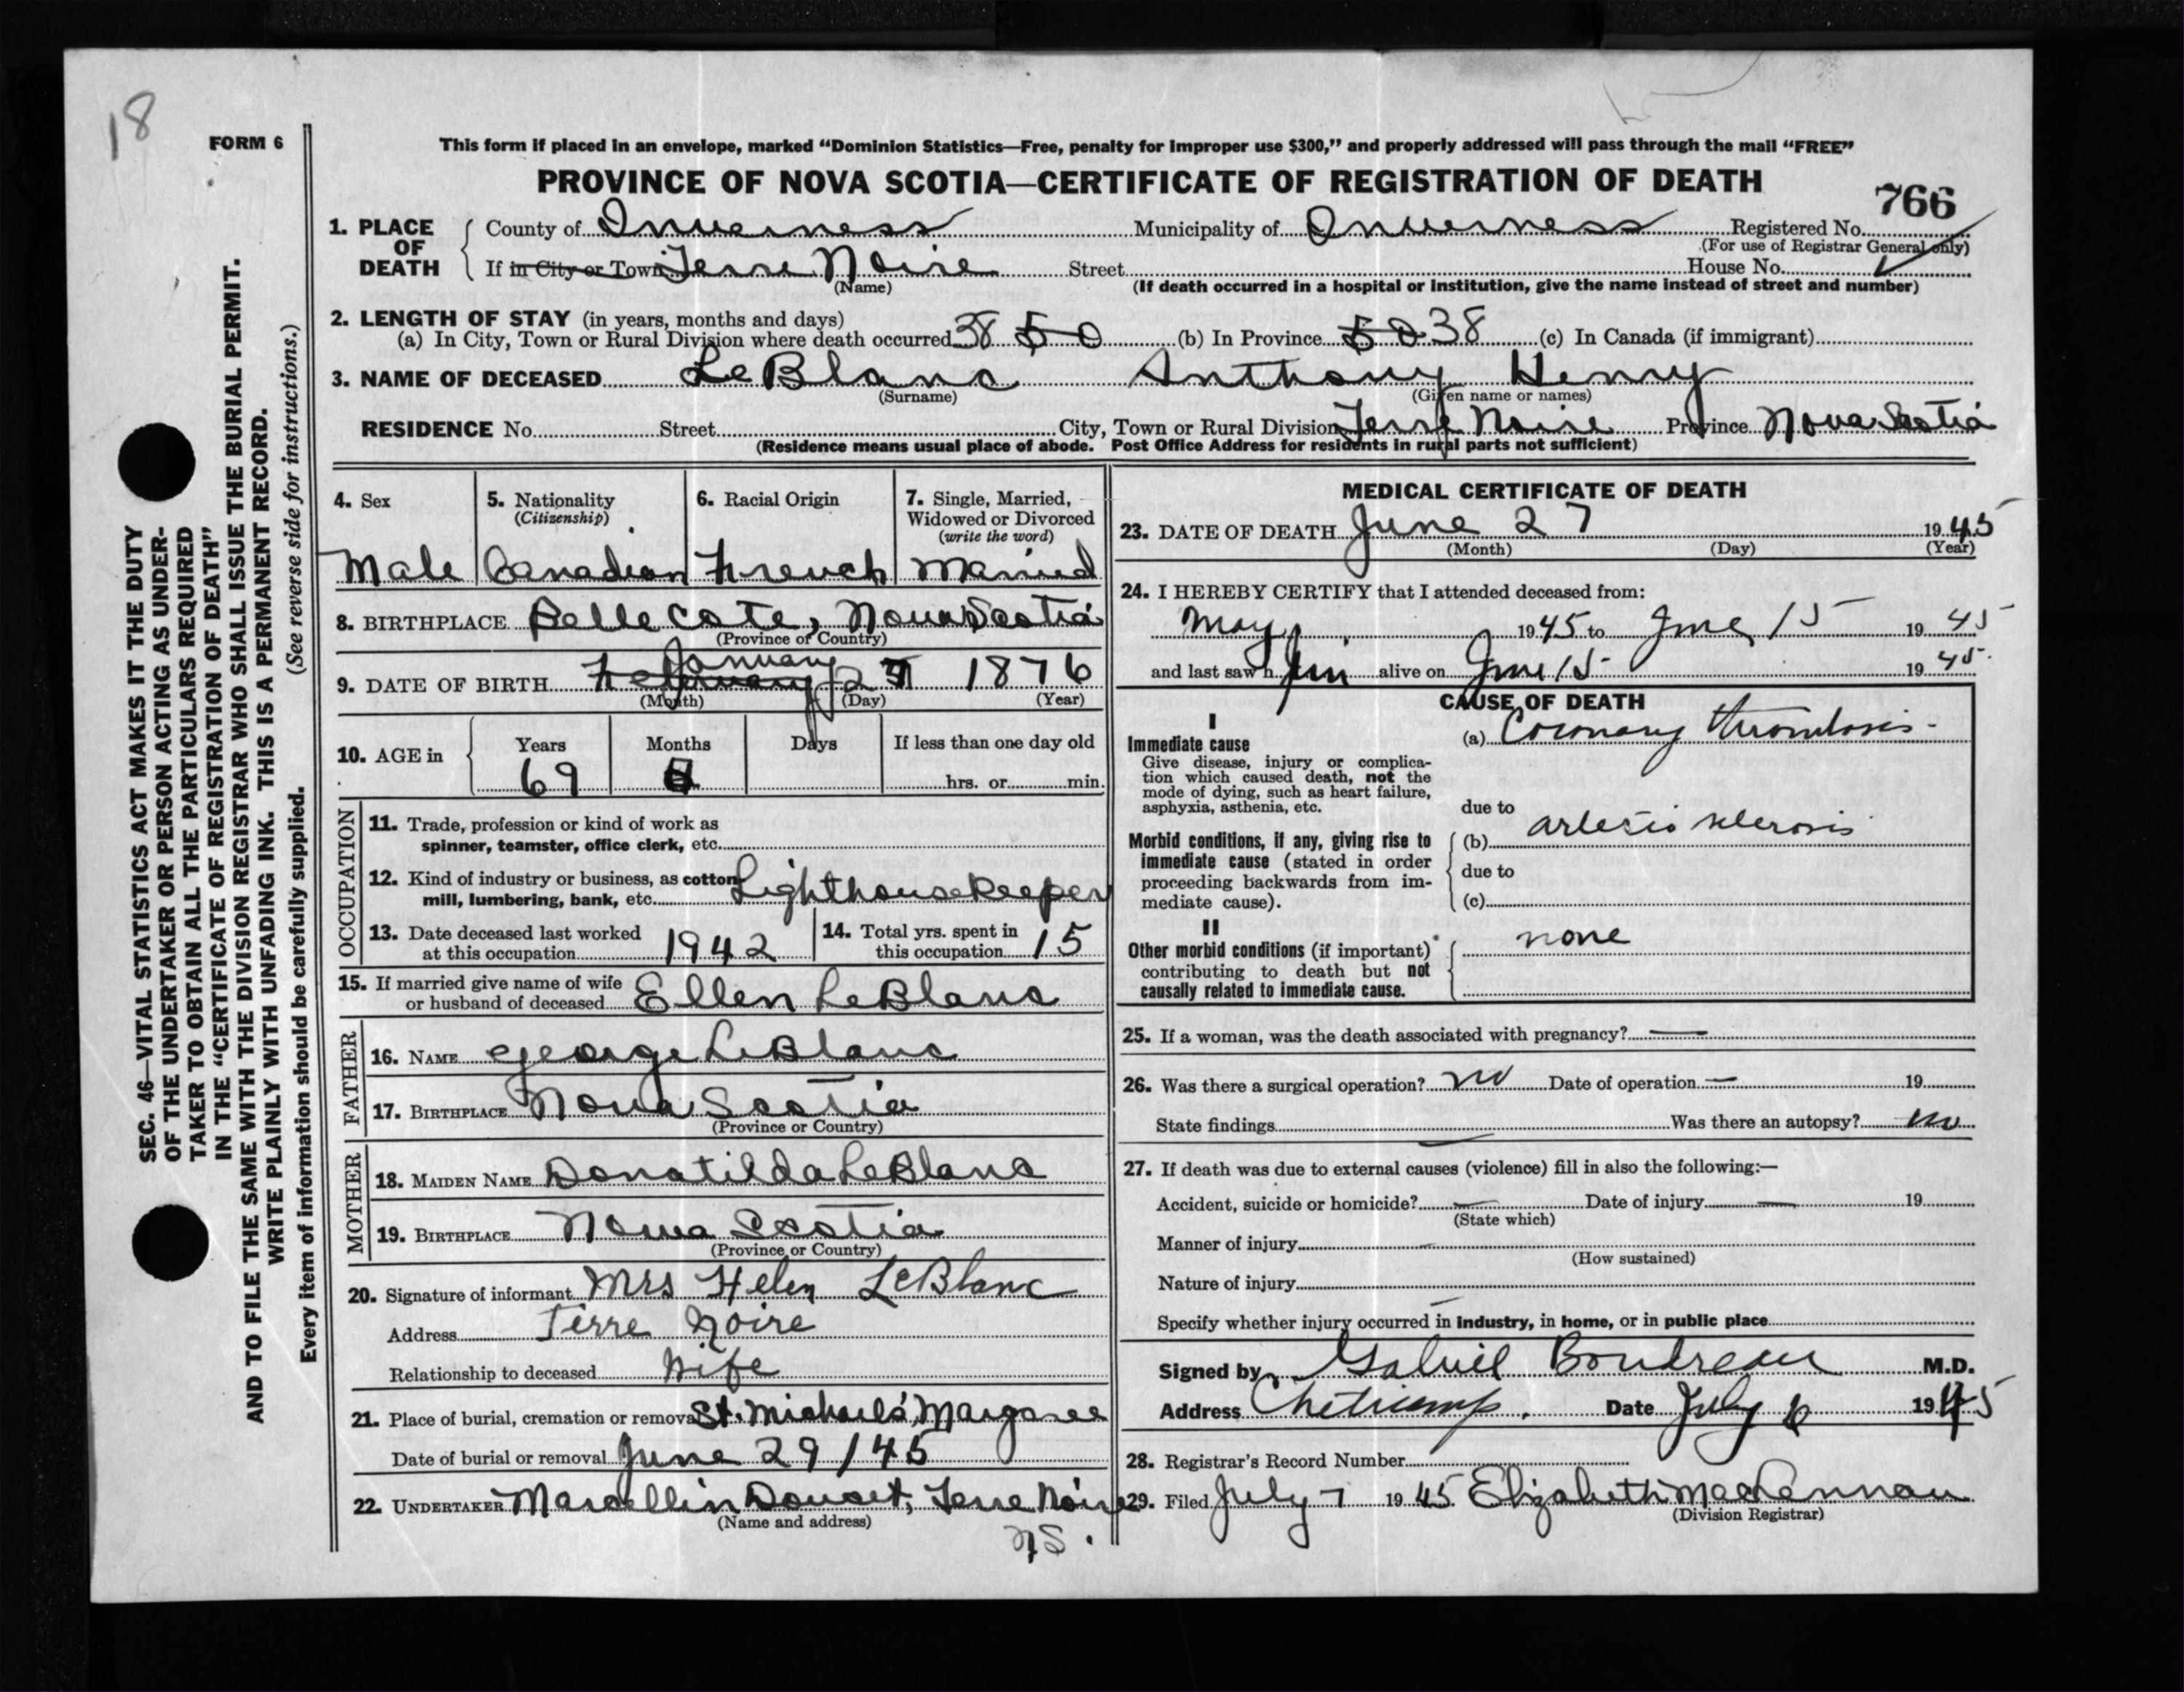 18
FORM 6
This form if placed in an envelope, marked “Dominion Statistics—Free, penalty for improper use $300,” and properly addressed will pass through the mail “FREE”
PROVINCE OF NOVA SCOTIA—CERTIFICATE OF REGISTRATION OF DEATH
766
1. PLACE OF DEATH
County of Inverness Municipality of Inverness Registered No.
(For use of Registrar General only)
If in City or Town Terre Noire Street House No.
(Name) (If death occurred in a hospital or institution, give the name instead of street and number)
2. LENGTH OF STAY (in years, months and days)
(a) In City, Town or Rural Division where death occurred 38 50 (b) In Province 50 38 (c) In Canada (if immigrant)
3. NAME OF DECEASED LeBlanc Anthony Henry
(Surname) (Given name or names)
RESIDENCE No. Street City, Town or Rural Division Terre Noire Province Nova Scotia
(Residence means usual place of abode. Post Office Address for residents in rural parts not sufficient)
4. Sex 5. Nationality 6. Racial Origin 7. Single, Married,
(Citizenship) Widowed or Divorced
(write the word)
Male Canadian French Married
8. BIRTHPLACE Belle Cote, Nova Scotia
(Province or Country)
January
9. DATE OF BIRTH February 2 1876
(Month) (Day) (Year)
10. AGE in Years Months Days If less than one day old
69 hrs. or min.
OCCUPATION
11. Trade, profession or kind of work as
spinner, teamster, office clerk, etc.
12. Kind of industry or business, as cotton
mill, lumbering, bank, etc. Lighthousekeeper
13. Date deceased last worked
at this occupation 1942
14. Total yrs. spent in
this occupation 15
15. If married give name of wife
or husband of deceased Ellen LeBlanc
FATHER
16. NAME George LeBlanc
17. BIRTHPLACE Nova Scotia
(Province or Country)
MOTHER
18. MAIDEN NAME Donatilda LeBlanc
19. BIRTHPLACE Nova Scotia
(Province or Country)
20. Signature of informant Mrs Helen LeBlanc
Address Terre Noire
Relationship to deceased Wife
21. Place of burial, cremation or removal St. Michael's Margaree
Date of burial or removal June 29/45
22. UNDERTAKER Marcellin Doucet, Terre Noire
(Name and address)
NS.
MEDICAL CERTIFICATE OF DEATH
23. DATE OF DEATH June 27 1945
(Month) (Day) (Year)
24. I HEREBY CERTIFY that I attended deceased from:
May 1945 to June 15 1945
and last saw him alive on June 15 1945
CAUSE OF DEATH
I
Immediate cause
Give disease, injury or complica-
tion which caused death, not the
mode of dying, such as heart failure,
asphyxia, asthenia, etc.
(a) Coronary thrombosis
due to
Morbid conditions, if any, giving rise to
immediate cause (stated in order
proceeding backwards from im-
mediate cause).
(b) arterio sclerosis
due to
(c)
II
Other morbid conditions (if important)
contributing to death but not
causally related to immediate cause.
none
25. If a woman, was the death associated with pregnancy? —
26. Was there a surgical operation? no Date of operation — 19
State findings Was there an autopsy? no
27. If death was due to external causes (violence) fill in also the following:—
Accident, suicide or homicide? — Date of injury — 19
(State which)
Manner of injury
(How sustained)
Nature of injury
Specify whether injury occurred in industry, in home, or in public place
Signed by Gabriel Boudreau M.D.
Address Cheticamp. Date July 6 1945
28. Registrar's Record Number
29. Filed July 7 1945 Elizabeth MacLennan
(Division Registrar)
SEC. 46—VITAL STATISTICS ACT MAKES IT THE DUTY
OF THE UNDERTAKER OR PERSON ACTING AS UNDER-
TAKER TO OBTAIN ALL THE PARTICULARS REQUIRED
IN THE “CERTIFICATE OF REGISTRATION OF DEATH”
AND TO FILE THE SAME WITH THE DIVISION REGISTRAR WHO SHALL ISSUE THE BURIAL PERMIT.
WRITE PLAINLY WITH UNFADING INK. THIS IS A PERMANENT RECORD.
Every item of information should be carefully supplied. (See reverse side for instructions.)